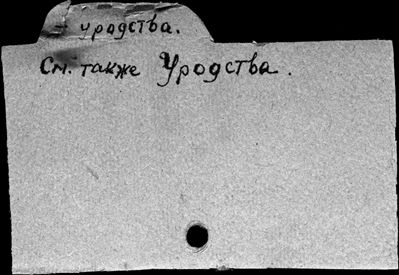 уродства.
См. также Уродства.